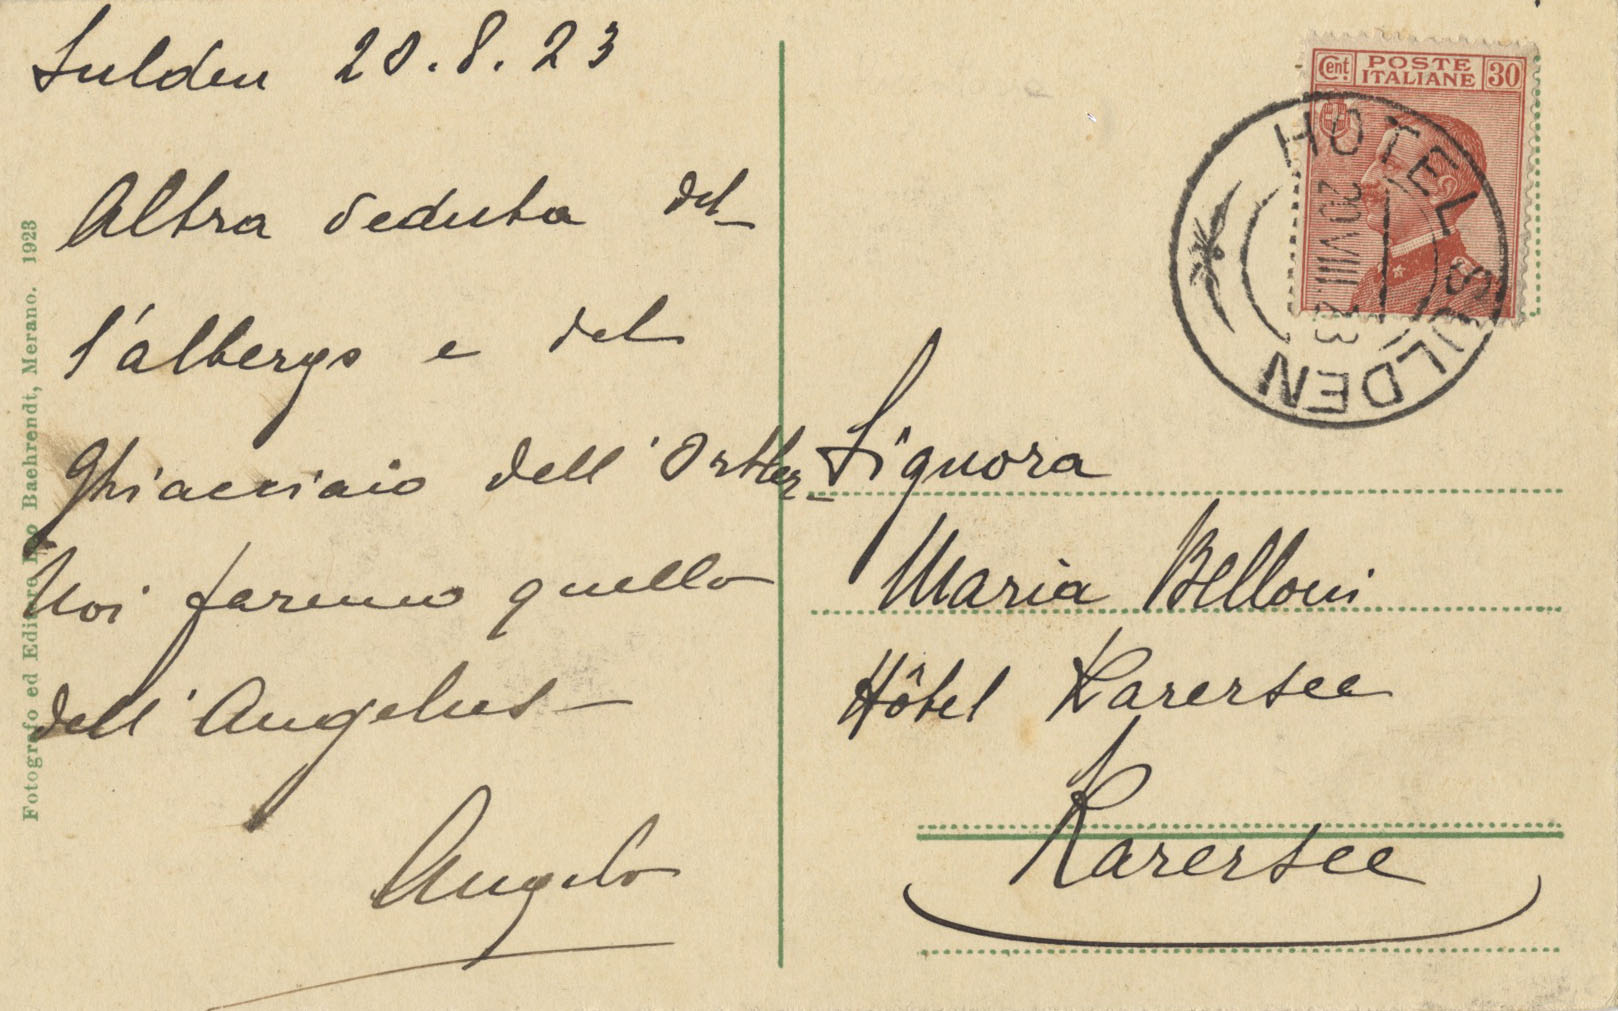 Sulden 20.8.23
Altra veduta del-
l'albergo e del
Ghiacciaio dell'Ortler-
Noi faremo quello
dell'Angelus-
Angelo
Fotografo ed Editore Baehrendt, Merano. 1923
Cent. POSTE ITALIANE 30
HOTEL SULDEN
20.VIII.23
Signora
Maria Belloni
Hôtel Karersee
Karersee